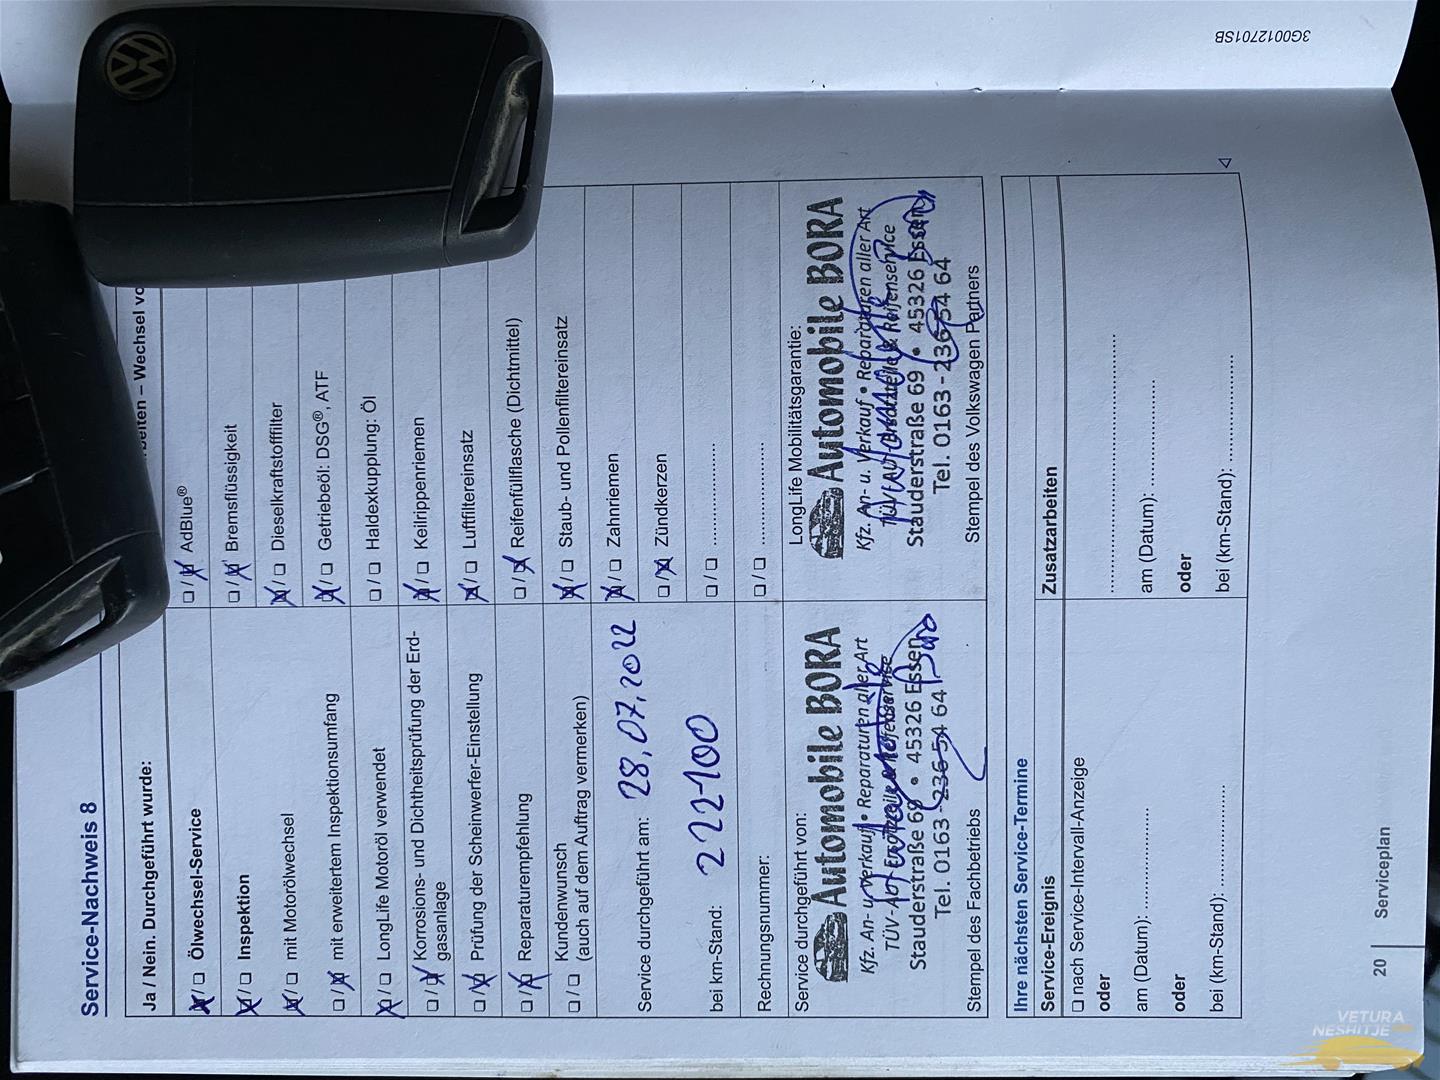 3G0012701SB
Service-Nachweis 8
Ja / Nein. Durchgeführt wurde:
Ölwechsel-Service
Inspektion
mit Motorölwechsel
mit erweitertem Inspektionsumfang
LongLife Motoröl verwendet
Korrosions- und Dichtheitsprüfung der Erd-
gasanlage
Prüfung der Scheinwerfer-Einstellung
Reparaturempfehlung
Kundenwunsch
(auch auf dem Auftrag vermerken)
– Wechsel
AdBlue®
Bremsflüssigkeit
Dieselkraftstofffilter
Getriebeöl: DSG®, ATF
Haldexkupplung: Öl
Keilrippenriemen
Luftfiltereinsatz
Reifenfüllflasche (Dichtmittel)
Staub- und Pollenfiltereinsatz
Zahnriemen
Zündkerzen
Service durchgeführt am: 28.07.2022
bei km-Stand: 222100
Rechnungsnummer:
Service durchgeführt von:
Automobile BORA
Kfz. An- u. Verkauf • Reparaturen aller Art
Stauderstraße 69 • 45326 Essen
Tel. 0163 - 236 54 64
Stempel des Fachbetriebs
LongLife Mobilitätsgarantie:
Automobile BORA
Kfz. An- u. Verkauf • Reparaturen aller Art
Stauderstraße 69 • 45326 Essen
Tel. 0163 - 236 54 64
Stempel des Volkswagen Partners
Ihre nächsten Service-Termine
Service-Ereignis
nach Service-Intervall-Anzeige
oder
am (Datum): ....................
oder
bei (km-Stand): ....................
Zusatzarbeiten
am (Datum): ....................
oder
bei (km-Stand): ....................
20 | Serviceplan
VETURA
NESHITJE